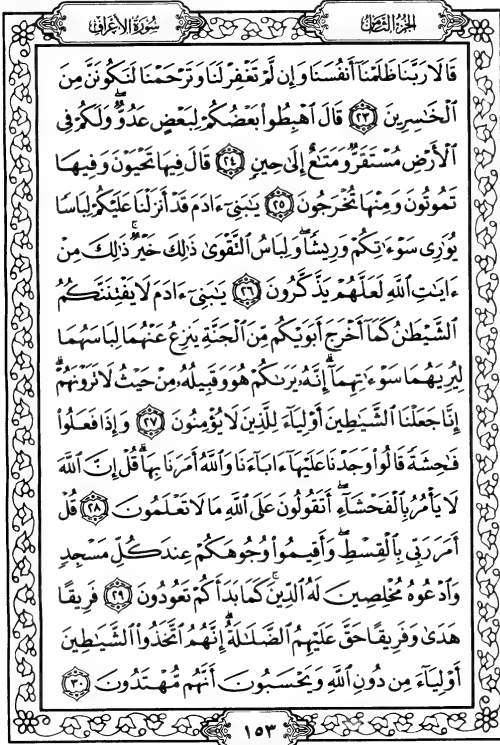 سورة الأعراف
الجزء الثامن
قَالَا رَبَّنَا ظَلَمْنَآ أَنفُسَنَا وَإِن لَّمْ تَغْفِرْ لَنَا وَتَرْحَمْنَا لَنَكُونَنَّ مِنَ
ٱلْخَٰسِرِينَ ٢٣ قَالَ ٱهْبِطُوا۟ بَعْضُكُمْ لِبَعْضٍ عَدُوٌّ ۖ وَلَكُمْ فِى
ٱلْأَرْضِ مُسْتَقَرٌّ وَمَتَٰعٌ إِلَىٰ حِينٍ ٢٤ قَالَ فِيهَا تَحْيَوْنَ وَفِيهَا
تَمُوتُونَ وَمِنْهَا تُخْرَجُونَ ٢٥ يَٰبَنِىٓ ءَادَمَ قَدْ أَنزَلْنَا عَلَيْكُمْ لِبَاسًا
يُوَٰرِى سَوْءَٰتِكُمْ وَرِيشًا ۖ وَلِبَاسُ ٱلتَّقْوَىٰ ذَٰلِكَ خَيْرٌ ۚ ذَٰلِكَ مِنْ
ءَايَٰتِ ٱللَّهِ لَعَلَّهُمْ يَذَّكَّرُونَ ٢٦ يَٰبَنِىٓ ءَادَمَ لَا يَفْتِنَنَّكُمُ
ٱلشَّيْطَٰنُ كَمَآ أَخْرَجَ أَبَوَيْكُم مِّنَ ٱلْجَنَّةِ يَنزِعُ عَنْهُمَا لِبَاسَهُمَا
لِيُرِيَهُمَا سَوْءَٰتِهِمَآ ۗ إِنَّهُۥ يَرَىٰكُمْ هُوَ وَقَبِيلُهُۥ مِنْ حَيْثُ لَا تَرَوْنَهُمْ ۗ
إِنَّا جَعَلْنَا ٱلشَّيَٰطِينَ أَوْلِيَآءَ لِلَّذِينَ لَا يُؤْمِنُونَ ٢٧ وَإِذَا فَعَلُوا۟
فَٰحِشَةً قَالُوا۟ وَجَدْنَا عَلَيْهَآ ءَابَآءَنَا وَٱللَّهُ أَمَرَنَا بِهَا ۗ قُلْ إِنَّ ٱللَّهَ
لَا يَأْمُرُ بِٱلْفَحْشَآءِ ۖ أَتَقُولُونَ عَلَى ٱللَّهِ مَا لَا تَعْلَمُونَ ٢٨ قُلْ
أَمَرَ رَبِّى بِٱلْقِسْطِ ۖ وَأَقِيمُوا۟ وُجُوهَكُمْ عِندَ كُلِّ مَسْجِدٍ
وَٱدْعُوهُ مُخْلِصِينَ لَهُ ٱلدِّينَ ۚ كَمَا بَدَأَكُمْ تَعُودُونَ ٢٩ فَرِيقًا
هَدَىٰ وَفَرِيقًا حَقَّ عَلَيْهِمُ ٱلضَّلَٰلَةُ ۗ إِنَّهُمُ ٱتَّخَذُوا۟ ٱلشَّيَٰطِينَ
أَوْلِيَآءَ مِن دُونِ ٱللَّهِ وَيَحْسَبُونَ أَنَّهُم مُّهْتَدُونَ ٣٠
١٥٣